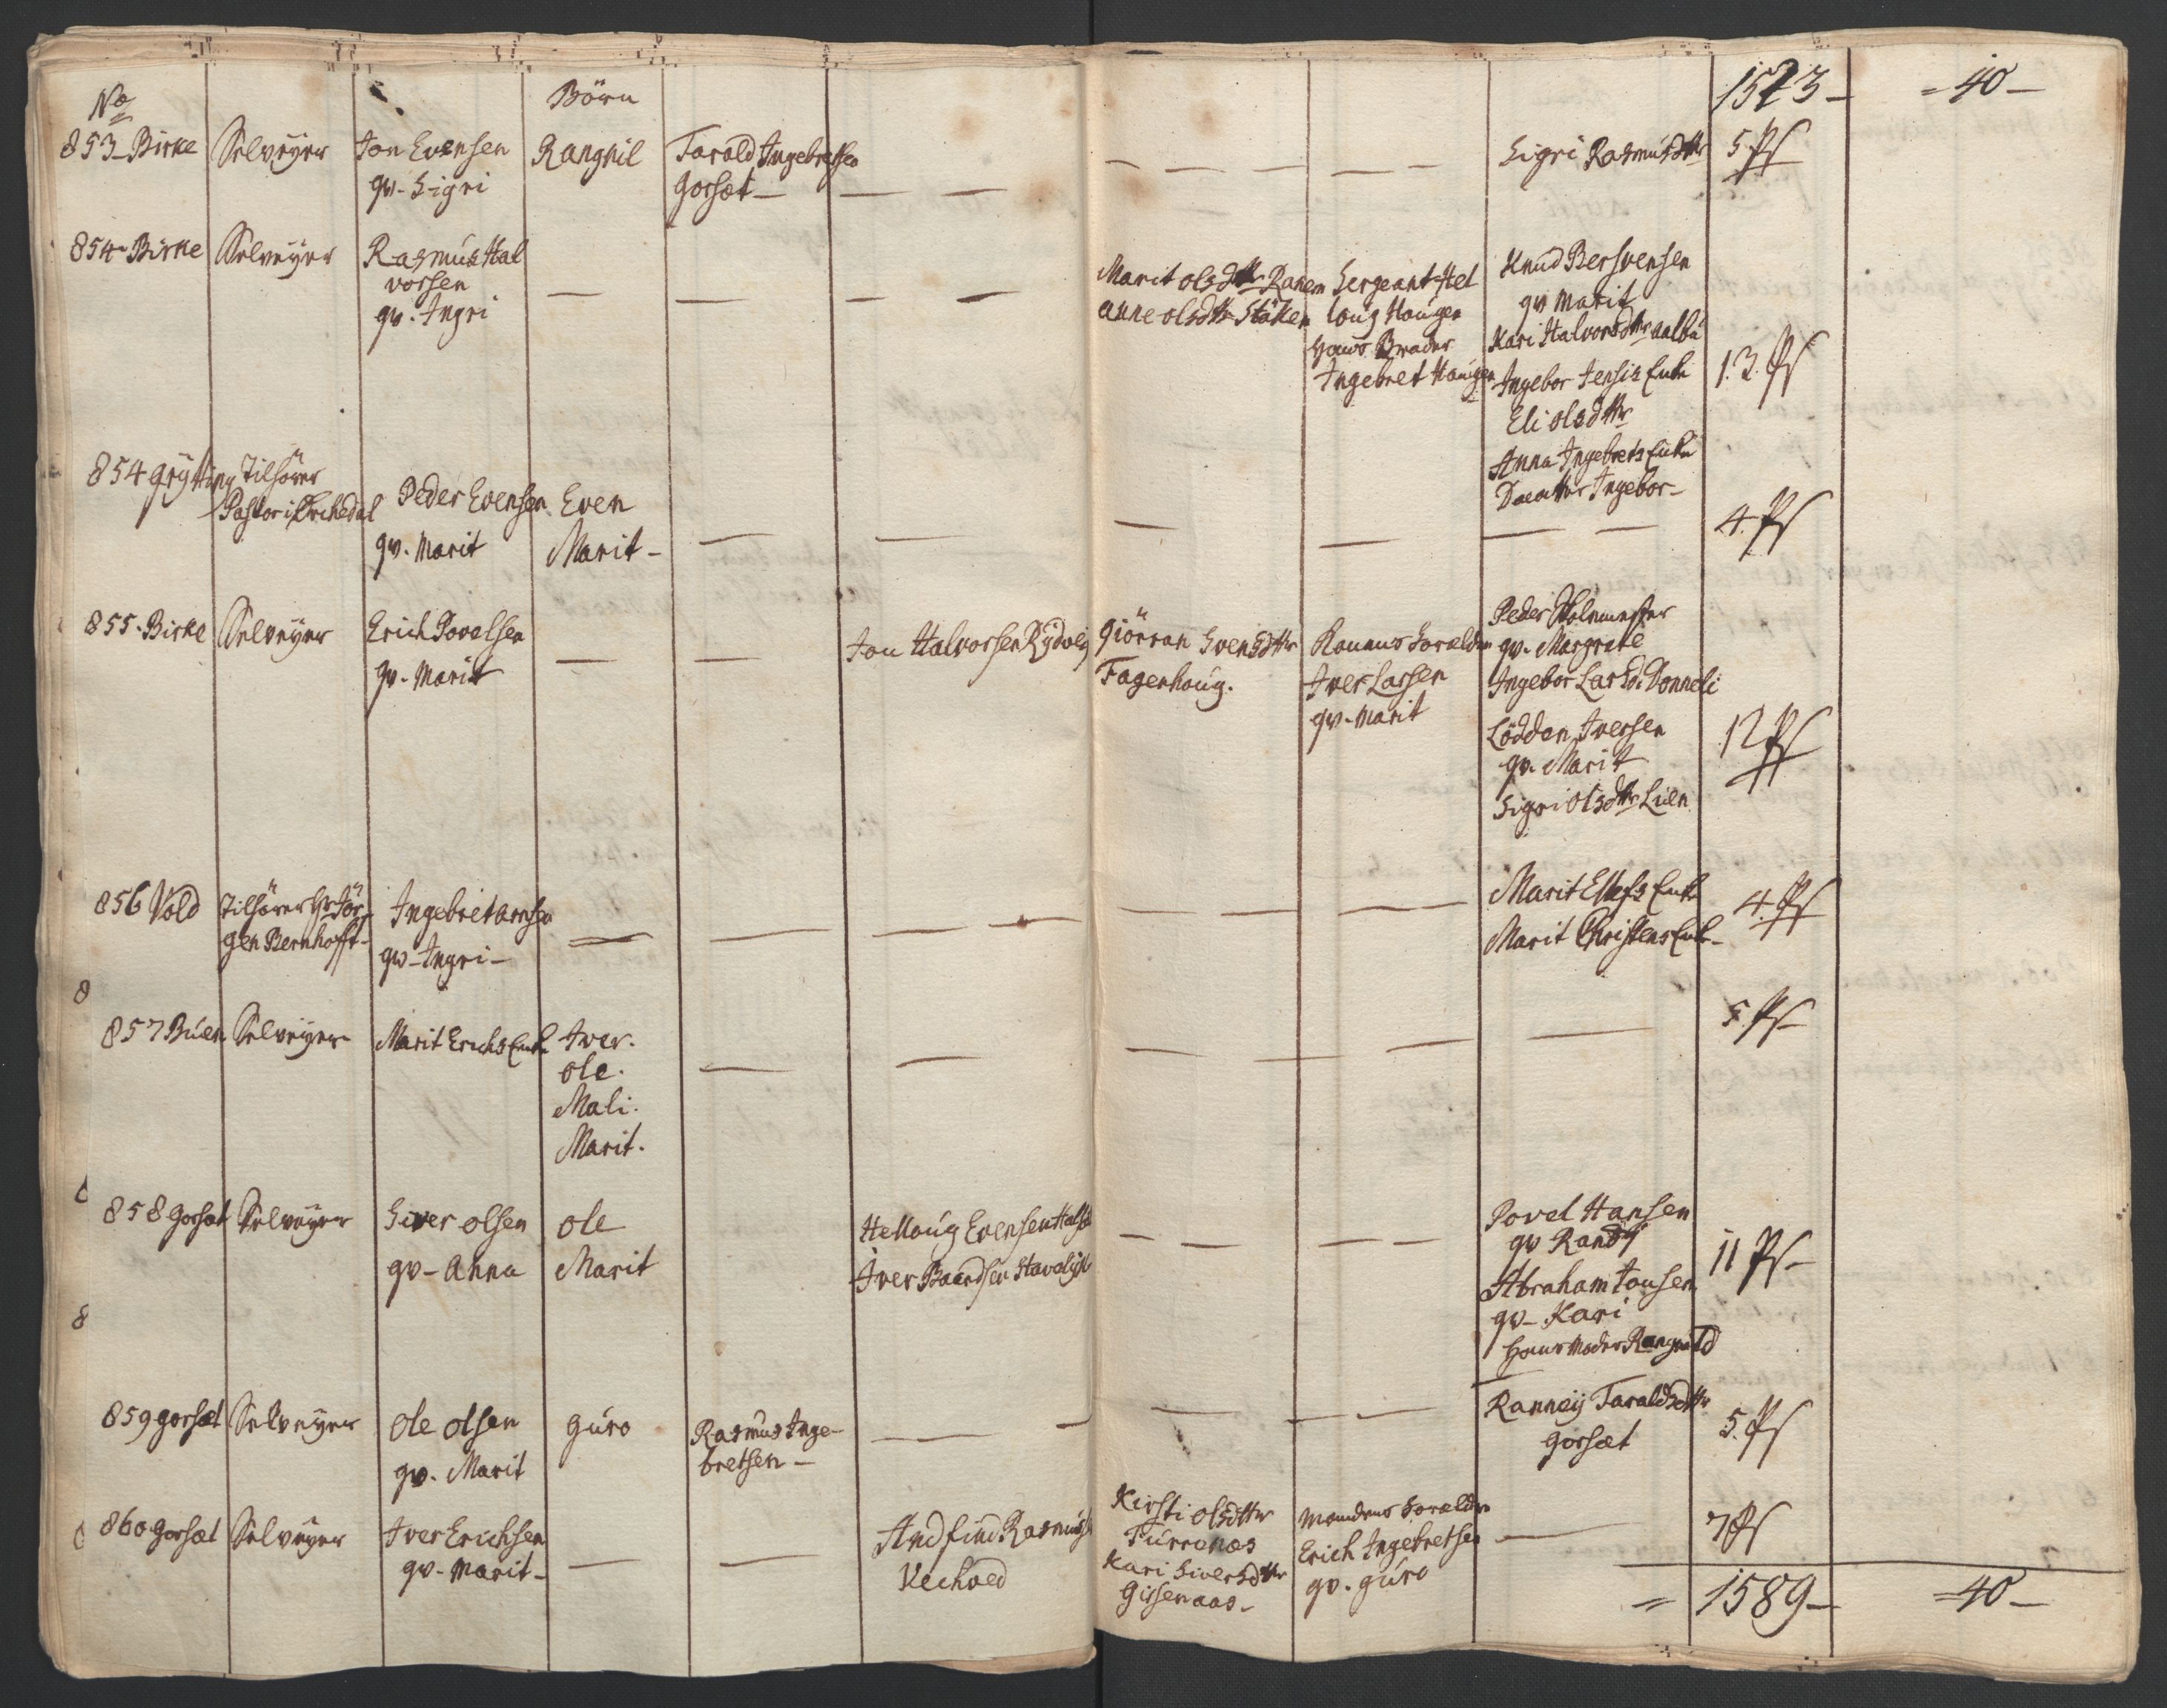 No
Börn
1523 -
= 40 -
853 - Birke Selveyer Jon Evensen Rangnil Tarald Ingebretsen
gv. Sigri
Gorset -
Sigri Rasmusdttr
5 Ps
854 - Birke Selveyer Rasmus Hal
vorsen
gv. Ingri
Marit olsdttr Ranem
anne olsdttr Stöken
Sergeant Hel
loug Haugen
hans Broder
Ingebret Haugen
Knud Bersvensen
gv Marit
Kari Halvorsdttr aalbu
Ingebor Jensis Enke
Eli olsdttr
Anna Ingebrets Enke
Daatter Ingebor -
13. Ps
854 grytting Tilhörer
Pastor i Orchedal
Peder Evensen
gv. Marit
Even
Marit -
4. Ps
855. Birke Selveyer Erich Povelsen
gv. Marit
Jon Halvorsen
Giörran Svensdttr
Fagerhoug.
Konens Forældre
Iver Larsen
gv. Marit
Peder Skolemester
gv. Margrete
Ingebor Larsd. Donneli
Lödden Iversen
gv. Marit
Sigri Olsdttr Lien
12 Ps
856 Vold Tilhörer Hr Jör
gen Bernhofft -
Ingebret arnsen
gv - Ingri -
Marit Ellefs Enke
Marit Christens Enke -
4. Ps
857 Buen Selveyer Marit Erichs Enke
Iver.
ole.
Mali.
Marit.
5. Ps -
858 Gorset Selveyer Siver olsen
gv - Anna
ole
Marit
Helloug Evensen
Iver Baardsen
Povel Hansen
gv Randi
Abraham Jonsen
gv - Kari
hans Moder Rangnild
11 Ps -
859 gorset Selveyer ole olsen
gv. Marit
guro
Rasmus Inge-
bretsen -
Ranneij Taraldsdttr
Gorset
5. Ps
860 Gorset Selveyer Iver Erichsen
gv - Marit -
Andfind Rasmuss
Kirsti olsdttr
Furrenæs
Kari Siversdttr
Girsenaas -
Mandens Forældre
Erich Ingebretsen
gv. guro
7 Ps
= 1589 - = 40 -